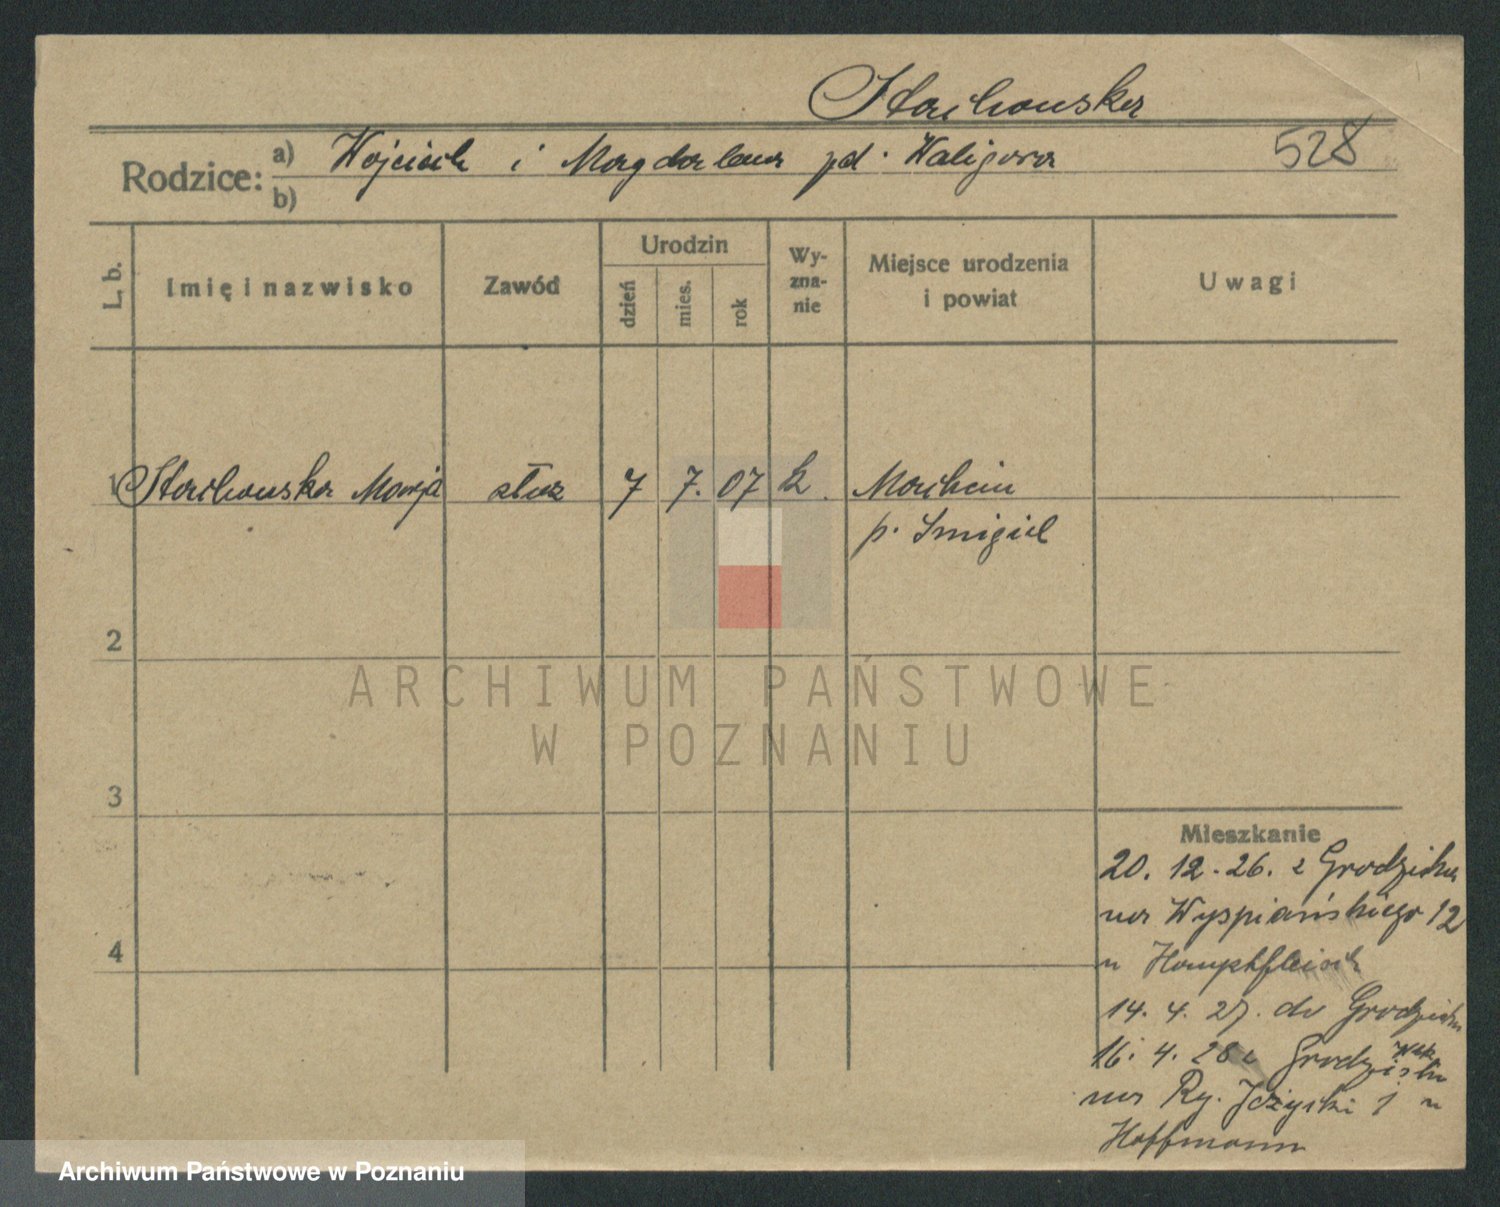 Stachowska
Rodzice: a) Wojciech i Magdalena pd. Waligora
528
b)
L. b.
Imię i nazwisko
Zawód
Urodzin
dzień
mies.
rok
Wy-
zna-
nie
Miejsce urodzenia
i powiat
Uwagi
1 Stachowska Marja służ 7 7. 07 k. Morkein
p. Smigiel
2
3
4
Mieszkanie
20. 12. 26. z Grodziska
na Wyspiańskiego 12
u Hauptfleisch
14. 4. 27. do Grodziska
16. 4. 28 z Grodziska
na Ry. Jeżycki 1 u
Hoffmann
ARCHIWUM PAŃSTWOWE
W POZNANIU
Archiwum Państwowe w Poznaniu